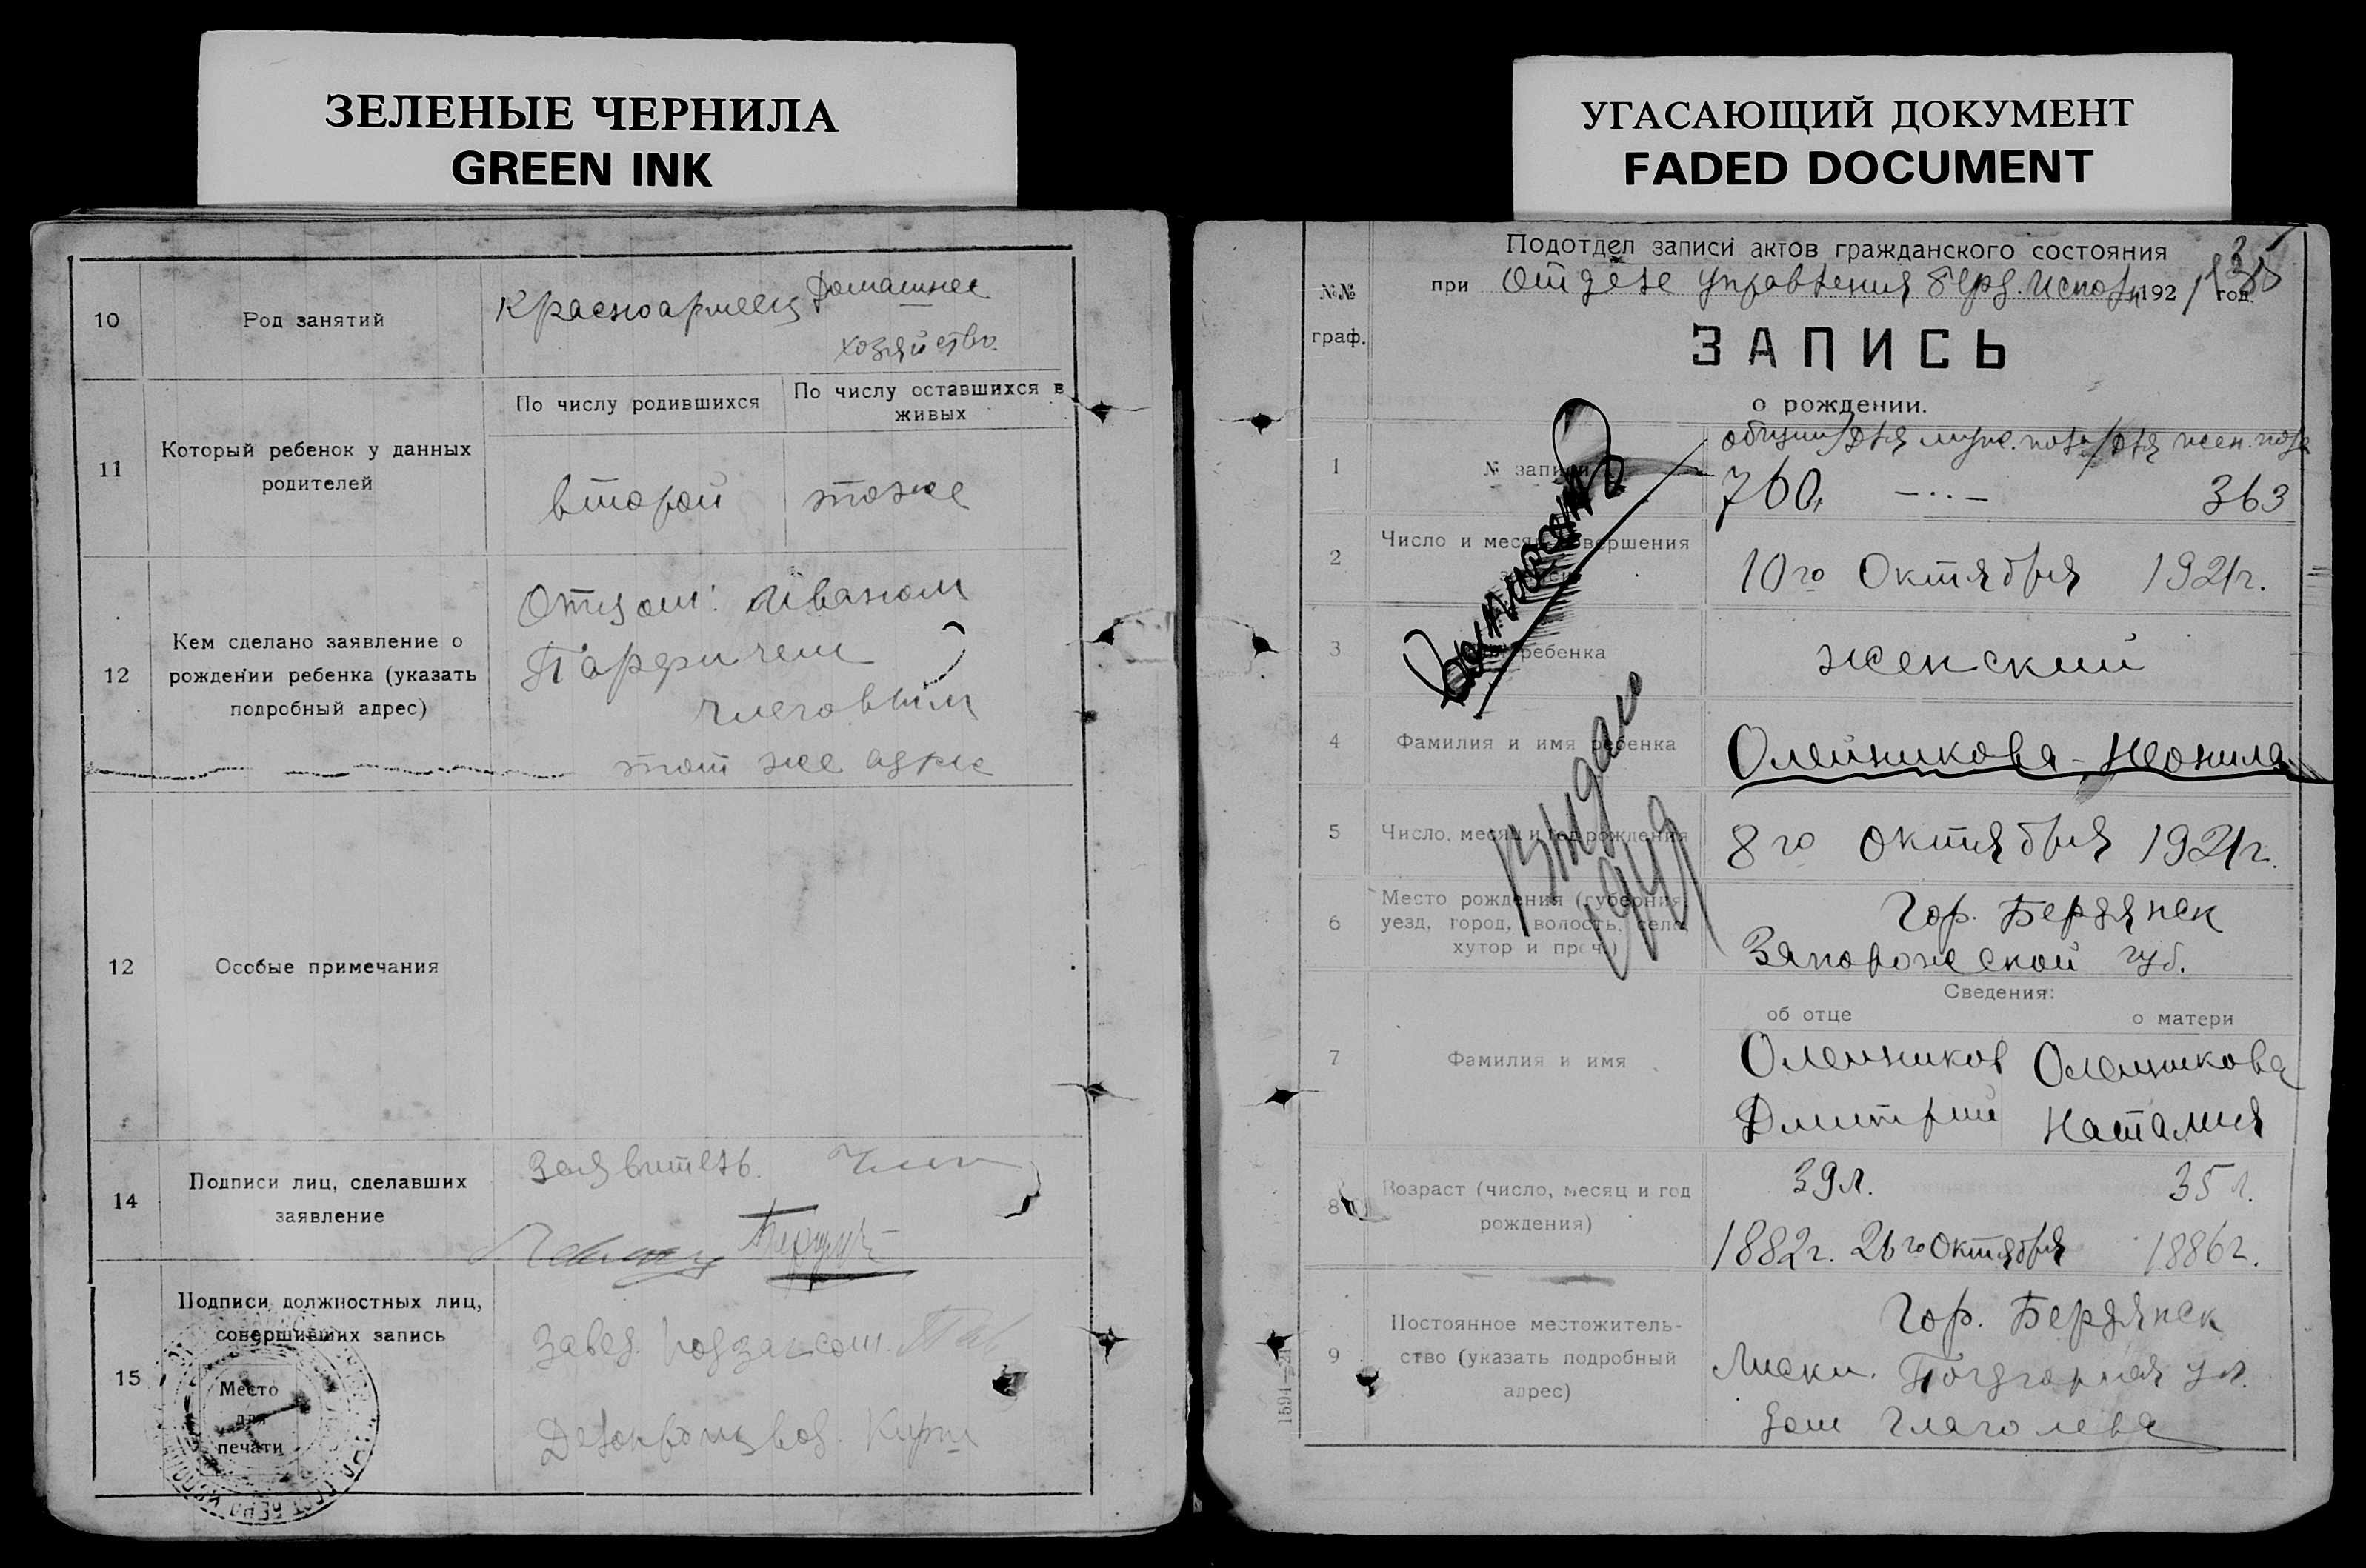 ЗЕЛЕНЫЕ ЧЕРНИЛА
GREEN INK
10
Род занятий
Красноармеец
Домашнее
хозяйство
11
Который ребенок у данных
родителей
По числу родившихся
По числу оставшихся в
живых
второй
тоже
12
Кем сделано заявление о
рождении ребенка (указать
подробный адрес)
Отцом: Иваном
тот же адрес
12
Особые примечания
14
Подписи лиц, сделавших
заявление
Заявитель.
15
Подписи должностных лиц,
совершивших запись
Место
для
печати
Завед. подзагсом.
Делопроизвод.
УГАСАЮЩИЙ ДОКУМЕНТ
FADED DOCUMENT
№№
граф.
Подотдел записи актов гражданского состояния
при Отделе Управления Берд. Исполк 1921 год
135
ЗАПИСЬ
о рождении.
1
№ записи
общий/для муж. пола/для жен. пола
760. — · · — 363
2
Число и месяц совершения
10го Октября 1921г.
3
ребенка
женский
4
Фамилия и имя ребенка
Олейникова - Неонила
5
Число, месяц и год рождения
8го Октября 1921г.
6
Место рождения (губерния,
уезд, город, волость, село,
хутор и проч.)
Гор. Бердянск
Запорожской губ.
Выдано
Сведения:
об отце
о матери
7
Фамилия и имя
Олейников Олейникова
Дмитрий Наталия
8
Возраст (число, месяц и год
рождения)
39л. 35 л.
1882г. 26го Октября 1886г.
9
Постоянное местожитель-
ство (указать подробный
адрес)
Гор. Бердянск
Лиски. Подгорная ул.
дом Глаголева
1591—21